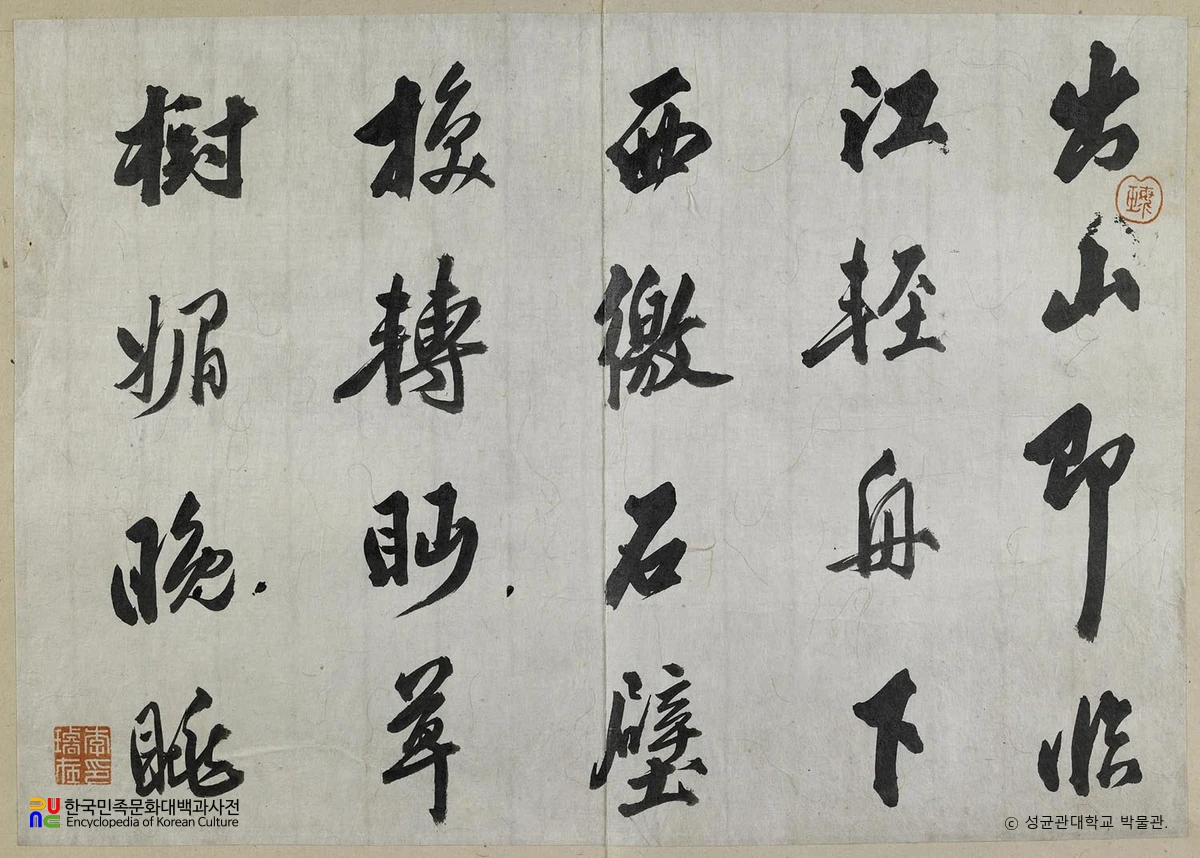 出山即臨
江輕舟下
西徼石壁
換轉眄草
樹媚晚眺
한국민족문화대백과사전
Encyclopedia of Korean Culture
ⓒ 성균관대학교 박물관.